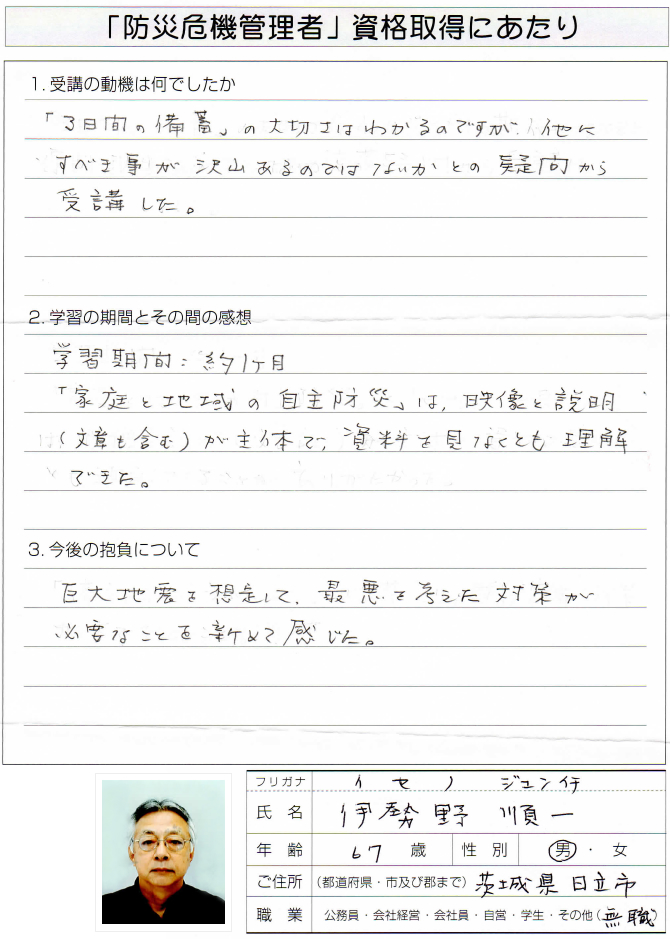 「防災危機管理者」資格取得にあたり
1. 受講の動機は何でしたか
「3日間の備蓄」の大切さはわかるのですが、他に
すべき事が沢山あるのではないかとの疑問から
受講した。
2. 学習の期間とその間の感想
学習期間：約1ヶ月
「家庭と地域の自主防災」は、映像と説明
(文章も含む)が主体で、資料を見なくとも理解
できた。
3. 今後の抱負について
巨大地震を想定して、最悪を考えた対策が
必要なことを新めて感じた。
フリガナ イセノ ジュンイチ
氏名 伊勢野 順一
年齢 67 歳 性別 男・女
ご住所 (都道府県・市及び郡まで) 茨城県日立市
職業 公務員・会社経営・会社員・自営・学生・その他(無職)